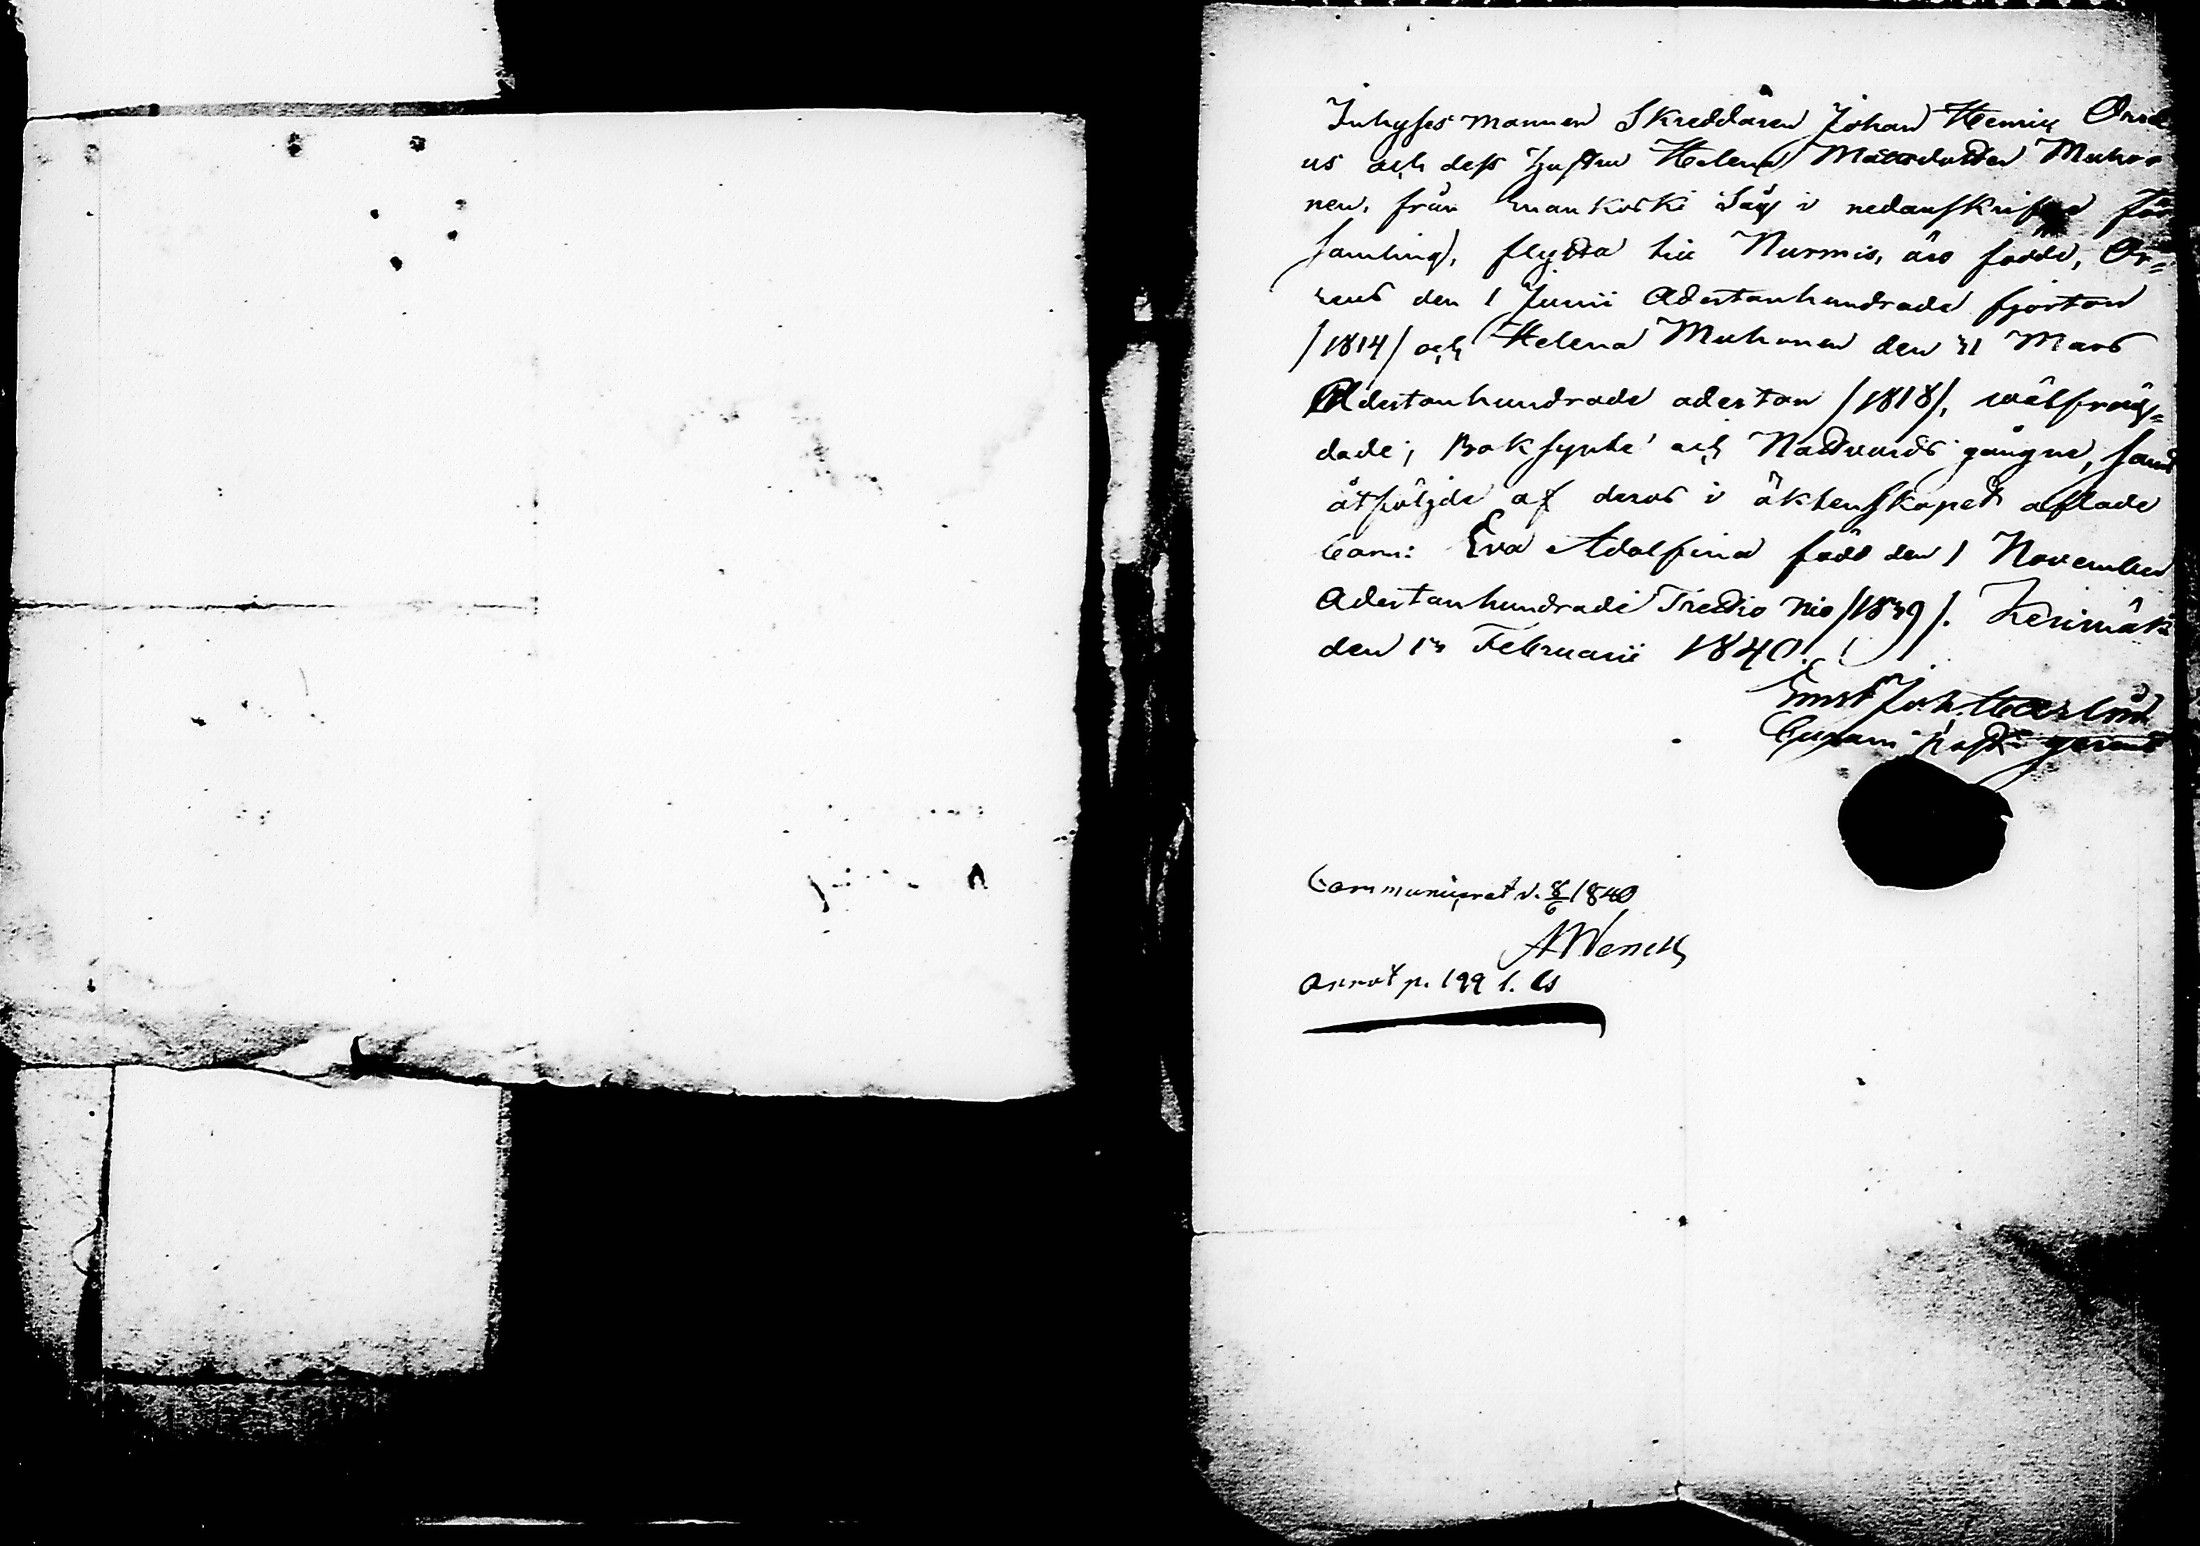 Inhyses mannen Skreddaren Johan Henric Orræ
us och dess hustru Helena Matsdotter Muhoo
nen, från Enankoski Såg i nedanskrifne för
samling, flytta till Nurmis, äro födde, Or=
reus den 1 Junii Adertonhundrade fjorton
/1814/ och Helena Muhonen den 31 Mars
Adertonhundrade aderton /1818/, wälfräg=
dade, Boksynte och Nattvards gångne, samt
åtföljde af deras i äktenskapet aflade
barn: Eva Adolfina född den 1 November
Adertonhundrade Trettio nio /1839/. Kerimäki
den 13 Februarii 1840.
Ernst Joh.
Communicerat d. 8/6 1840
A Wenell
Annot p. 199 l.